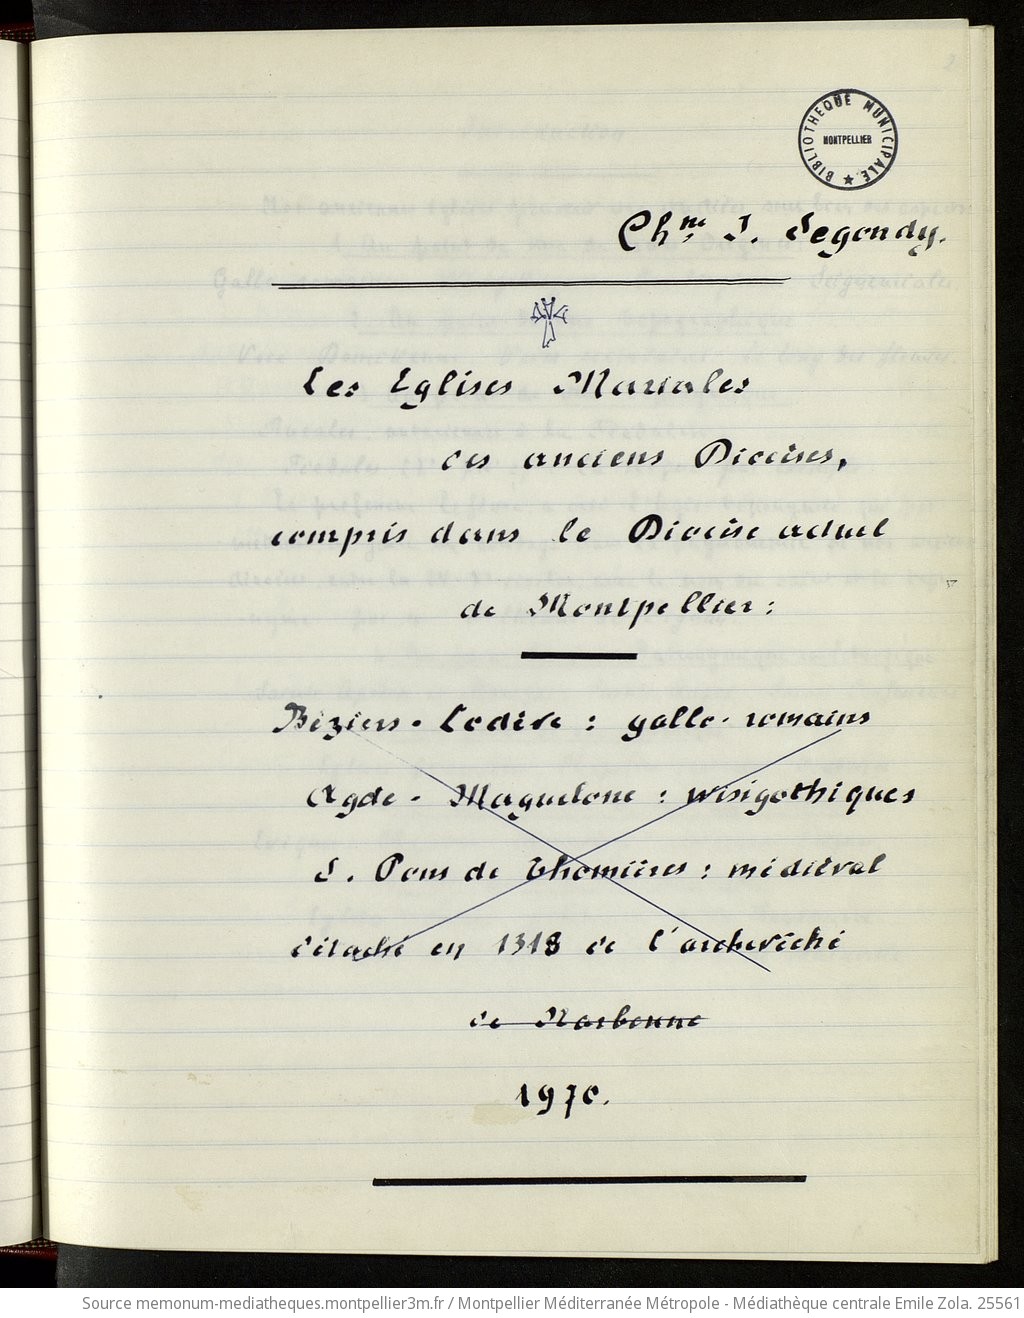 BIBLIOTHEQUE MUNICIPALE
MONTPELLIER
Chne J. Segondy.
Les Eglises Mariales
des anciens Diocèses,
compris dans le Diocèse actuel
de Montpellier :
Béziers - Lodève : gallo-romains
Agde - Maguelone : wisigothiques
S. Pons de Thomières : médiéval
détaché en 1318 de l'archevêché
de Narbonne
1970.
Source memonum-mediatheques.montpellier3m.fr / Montpellier Méditerranée Métropole - Médiathèque centrale Emile Zola. 25561